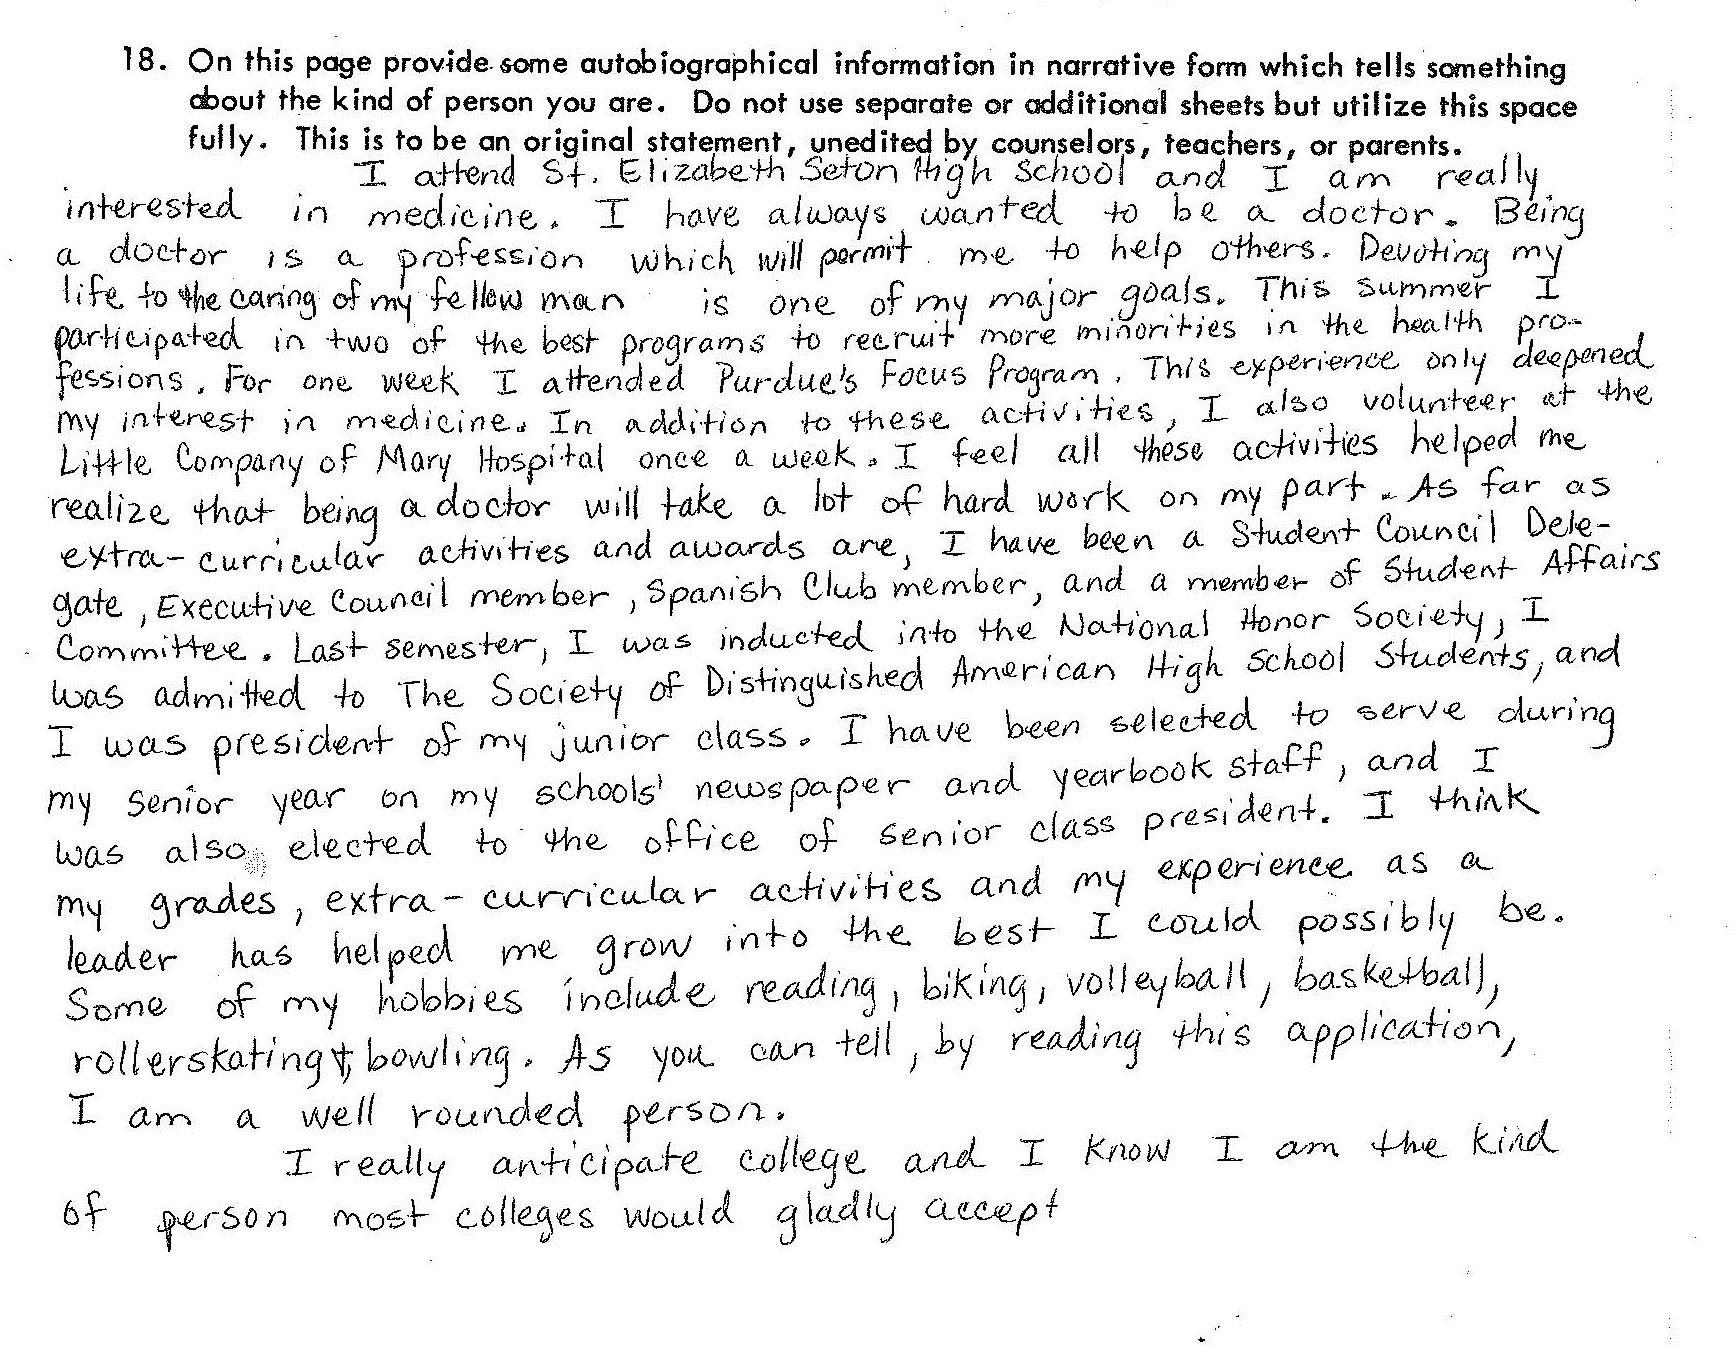 18. On this page provide some autobiographical information in narrative form which tells something
about the kind of person you are. Do not use separate or additional sheets but utilize this space
fully. This is to be an original statement, unedited by counselors, teachers, or parents.
I attend St. Elizabeth Seton High School and I am really
interested in medicine. I have always wanted to be a doctor. Being
a doctor is a profession which will permit me to help others. Devoting my
life to the caring of my fellow man is one of my major goals. This summer I
participated in two of the best programs to recruit more minorities in the health pro-
fessions. For one week I attended Purdue's Focus Program. This experience only deepened
my interest in medicine. In addition to these activities, I also volunteer at the
Little Company of Mary Hospital once a week. I feel all these activities helped me
realize that being a doctor will take a lot of hard work on my part. As far as
extra-curricular activities and awards are, I have been a Student Council Dele-
gate, Executive Council member, Spanish Club member, and a member of Student Affairs
Committee. Last semester, I was inducted into the National Honor Society, I
was admitted to The Society of Distinguished American High School Students, and
I was president of my junior class. I have been selected to serve during
my senior year on my schools' newspaper and yearbook staff, and I
was also elected to the office of senior class president. I think
my grades, extra-curricular activities and my experience as a
leader has helped me grow into the best I could possibly be.
Some of my hobbies include reading, biking, volleyball, basketball,
rollerskating & bowling. As you can tell, by reading this application,
I am a well rounded person.
I really anticipate college and I know I am the kind
of person most colleges would gladly accept